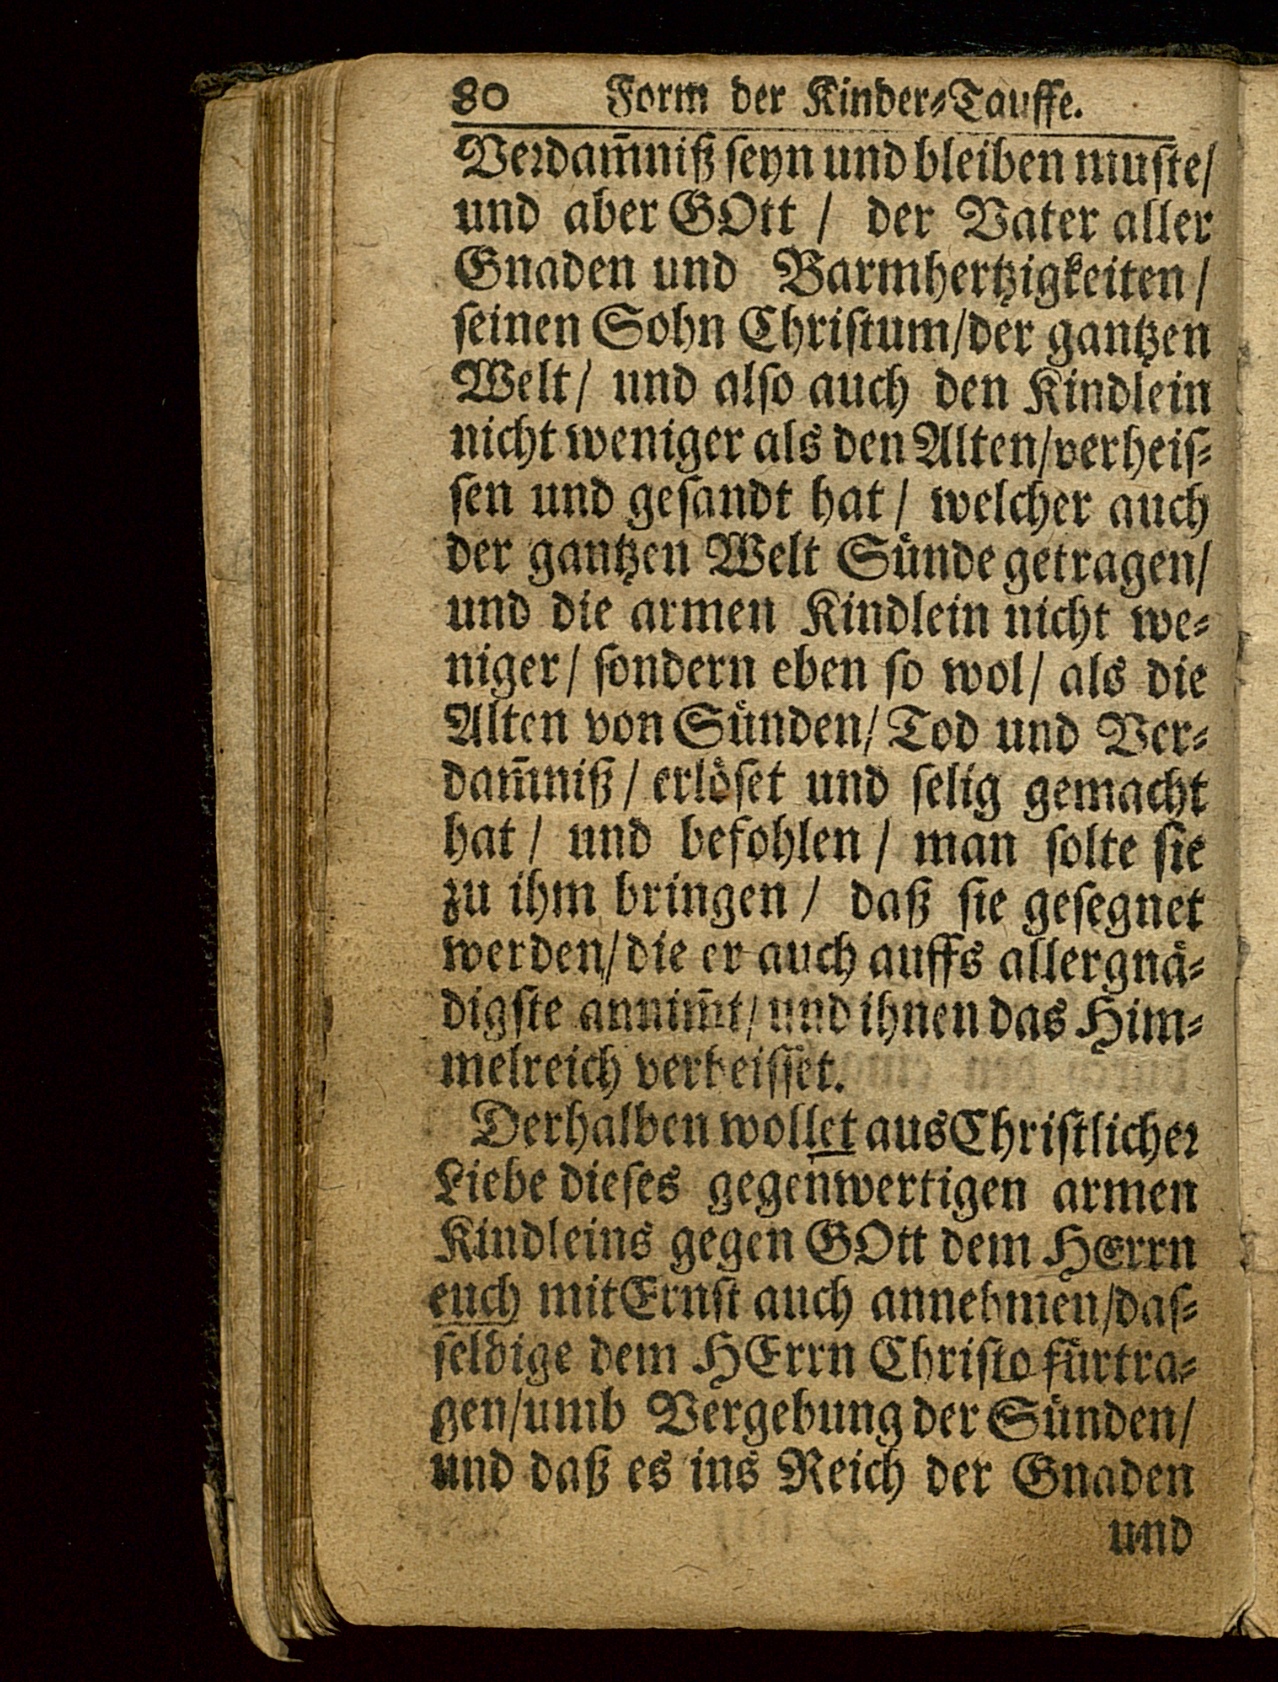 80 Form der Kinder⸗Tauffe.
Verdam̃niß ſeyn und bleiben muſte/
und aber GOtt / der Vater aller
Gnaden und Barmhertzigkeiten /
ſeinen Sohn Chriſtum/der gantzen
Welt / und alſo auch den Kindlein
nicht weniger als den Alten/verheiſ⸗
ſen und geſandt hat / welcher auch
der gantzen Welt Suͤnde getragen/
und die armen Kindlein nicht we⸗
niger / ſondern eben ſo wol / als die
Alten von Suͤnden / Tod und Ver⸗
dam̃niß / erloͤſet und ſelig gemacht
hat / und befohlen / man ſolte ſie
zu ihm bringen / daß ſie geſegnet
werden/die er auch auffs allergnaͤ⸗
digſte annim̃t/und ihnen das Him⸗
melreich verheiſſet.
Derhalben wollet aus Chriſtlicher
Liebe dieſes gegenwertigen armen
Kindleins gegen GOtt dem HErrn
euch mit Ernſt auch annehmen/daſ⸗
ſelbige dem HErrn Chriſto fuͤrtra⸗
gen/umb Vergebung der Suͤnden/
und daß es ins Reich der Gnaden
und